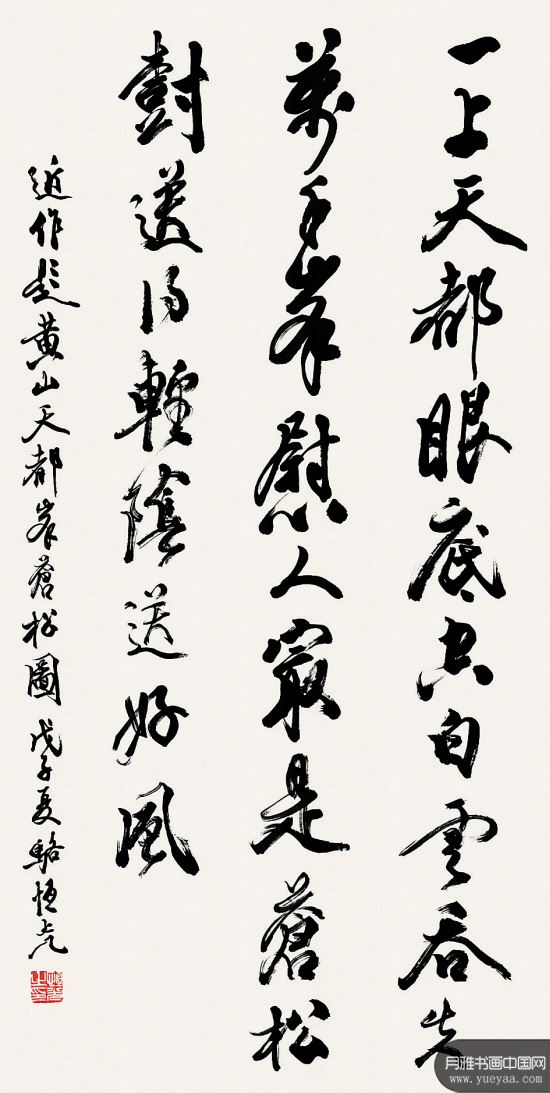 一上天都眼底空白雲吞失
萬千峯慰人㝡是蒼松
樹送得輕陰送好風
近作題黄山天都峯蒼松圖 戊子夏駱恒光
月雅书画中国网
www.yueyaa.com